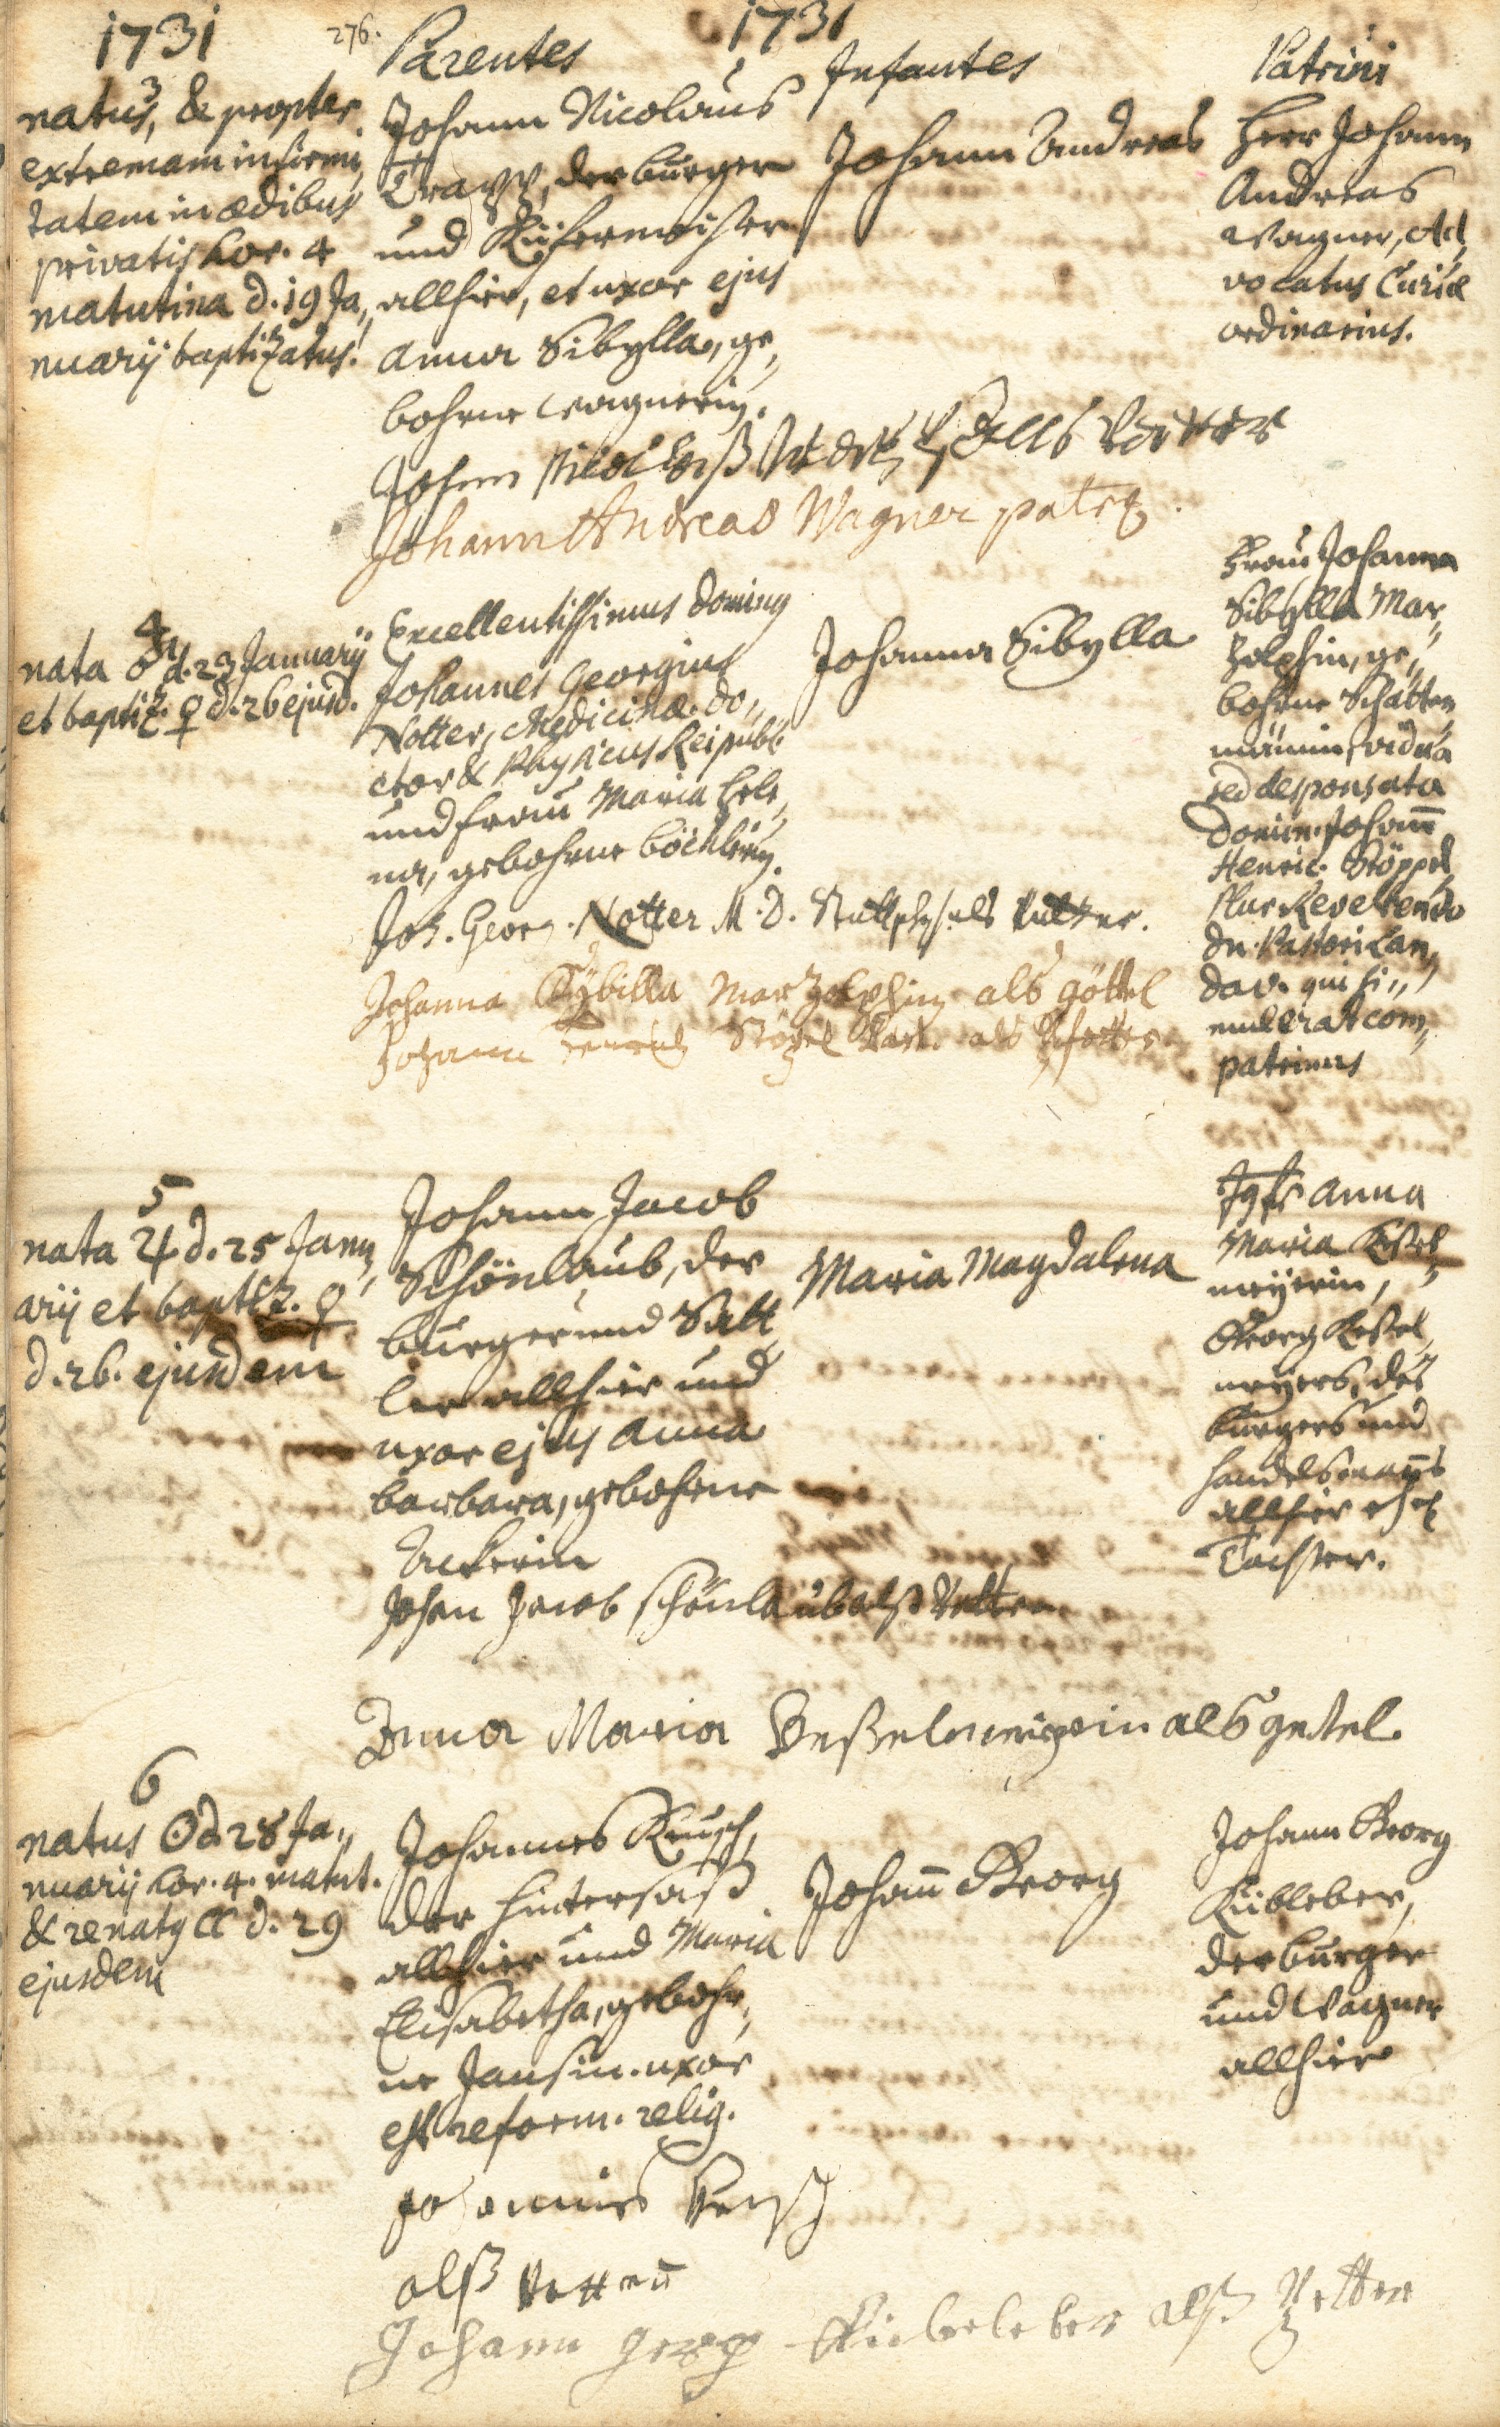 1731
276.
1731
Parentes
Infantes
Patrini
3
natus, & propter
extremam infirmi„
tatem in ædibus
privatis hor. 4
matutina d. 19 Ja„
nuarij baptizatus.
Johann Nicolaus
Trapp, der burger
und Küfermeister
allhier, et uxor ejus
Anna Sibylla, ge„
bohrne Wagnerin.
Johann Andreas
Herr Johann
Andreas
Wagner, Ad„
vocatus Curiæ
ordinarius.
Johann
als Vatter
Johann Andreas Wagner
4
nata ♂ d. 23 Januarij
et baptiz. ♀ d. 26 ejusd.
Excellentissimus Dominus
Johannes Georgius
Notter, Medicinæ Do„
ctor & Physicus Reipubl.
und frau Maria Hele„
na, gebohrne Böcklerin.
Johanna Sibylla
Frau Johanna
Sibylla Mar„
zolphin, ge„
bohrne Schatten
männin, vidua
sed desponsata
Domin. Johann
Henric. Stöppel
Plur Reverendo
Dn. Pastori Lan„
dav. qui si„
mul erat com„
patrinus
Joh. Georg. Notter M. D. als Vatter.
Johanna Sybilla Marzolphin als göttel
Johann Stöpel als
5
nata ♃ d. 25 Janu„
arij et baptiz. ♀
d. 26. ejusdem
Johann Jacob
Schönlaub, der
burger und Satt„
ler allhier und
uxor ejus Anna
Barbara, gebohrne
Ackerin
Maria Magdalena
Jgfr. Anna
Maria Keßel„
meyerin,
Georg Keßel„
meyers, des
burgers und
handelsmanns
allhier ehel.
Tochter.
Johan Jacob schönlaub alß Vatter
Anna Maria Keßelmeigerin als getel.
6
natus ☉ d. 28 Ja„
nuarij hor. 4. matut.
& renatus ☾ d. 29
ejusdem
Johannes Reusch,
der Hintersaß
allhier und Maria
Elisabetha, gebohr„
ne Jansin. uxor
est reform. relig.
Johann Georg
Johann Georg
Kübleber,
der burger
und Wagner
allhier
Johannes Reusch
alß Vatter
Johann Georg Kiebeleber alß Petter